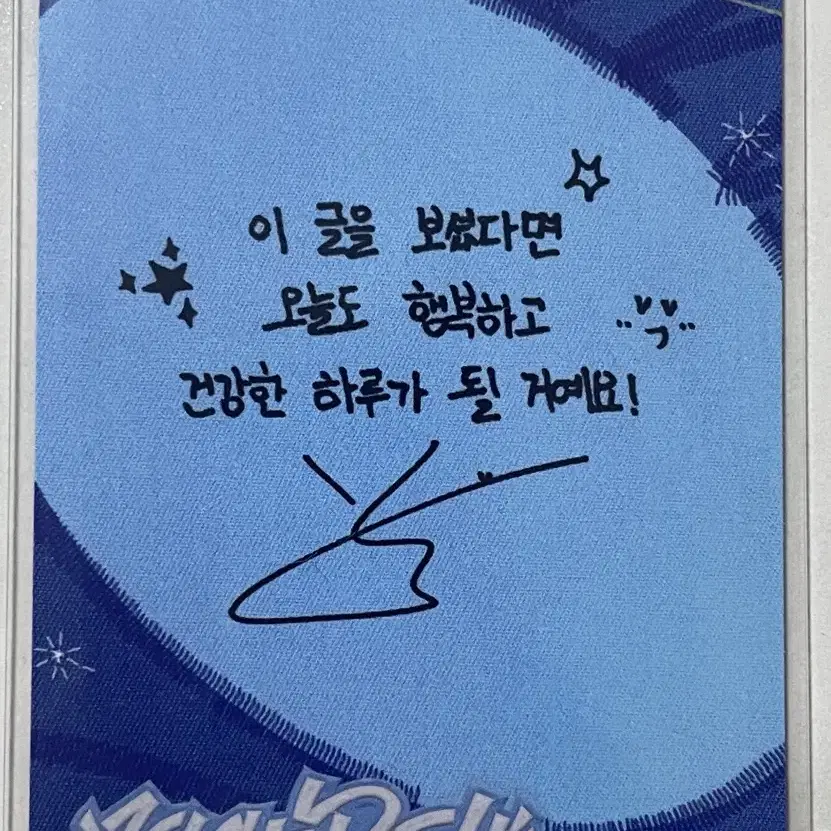 이 글을 보셨다면
오늘도 행복하고
건강한 하루가 될 거예요!